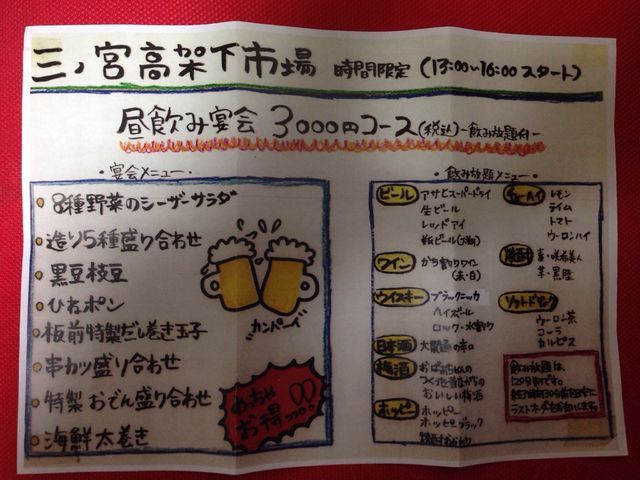 三ノ宮高架下市場 時間限定 (13:00~16:00スタート)
昼飲み宴会 3000円コース(税込)-飲み放題付-
・宴会メニュー・
8種野菜のシーザーサラダ
造り5種盛り合わせ
黒豆枝豆
ひねポン
板前特製だし巻き玉子
串カツ盛り合わせ
特製 おでん盛り合わせ
海鮮太巻き
カンパーイ
めっちゃ
お得
・飲み放題メニュー・
ビール アサヒスーパードライ
生ビール
レッドアイ
瓶ビール
ワイン かち割りワイン
(赤・白)
ウイスキー ブラックニッカ
ハイボール
ロック・水割り
日本酒
梅酒 おばあちゃんの
つくる昔ながらの
おいしい梅酒
ホッピー ホッピー
ホッピーブラック
チューハイ レモン
ライム
トマト
ウーロンハイ
焼酎
ソフトドリンク ウーロン茶
コーラ
カルピス
飲み放題は、
120分制です。